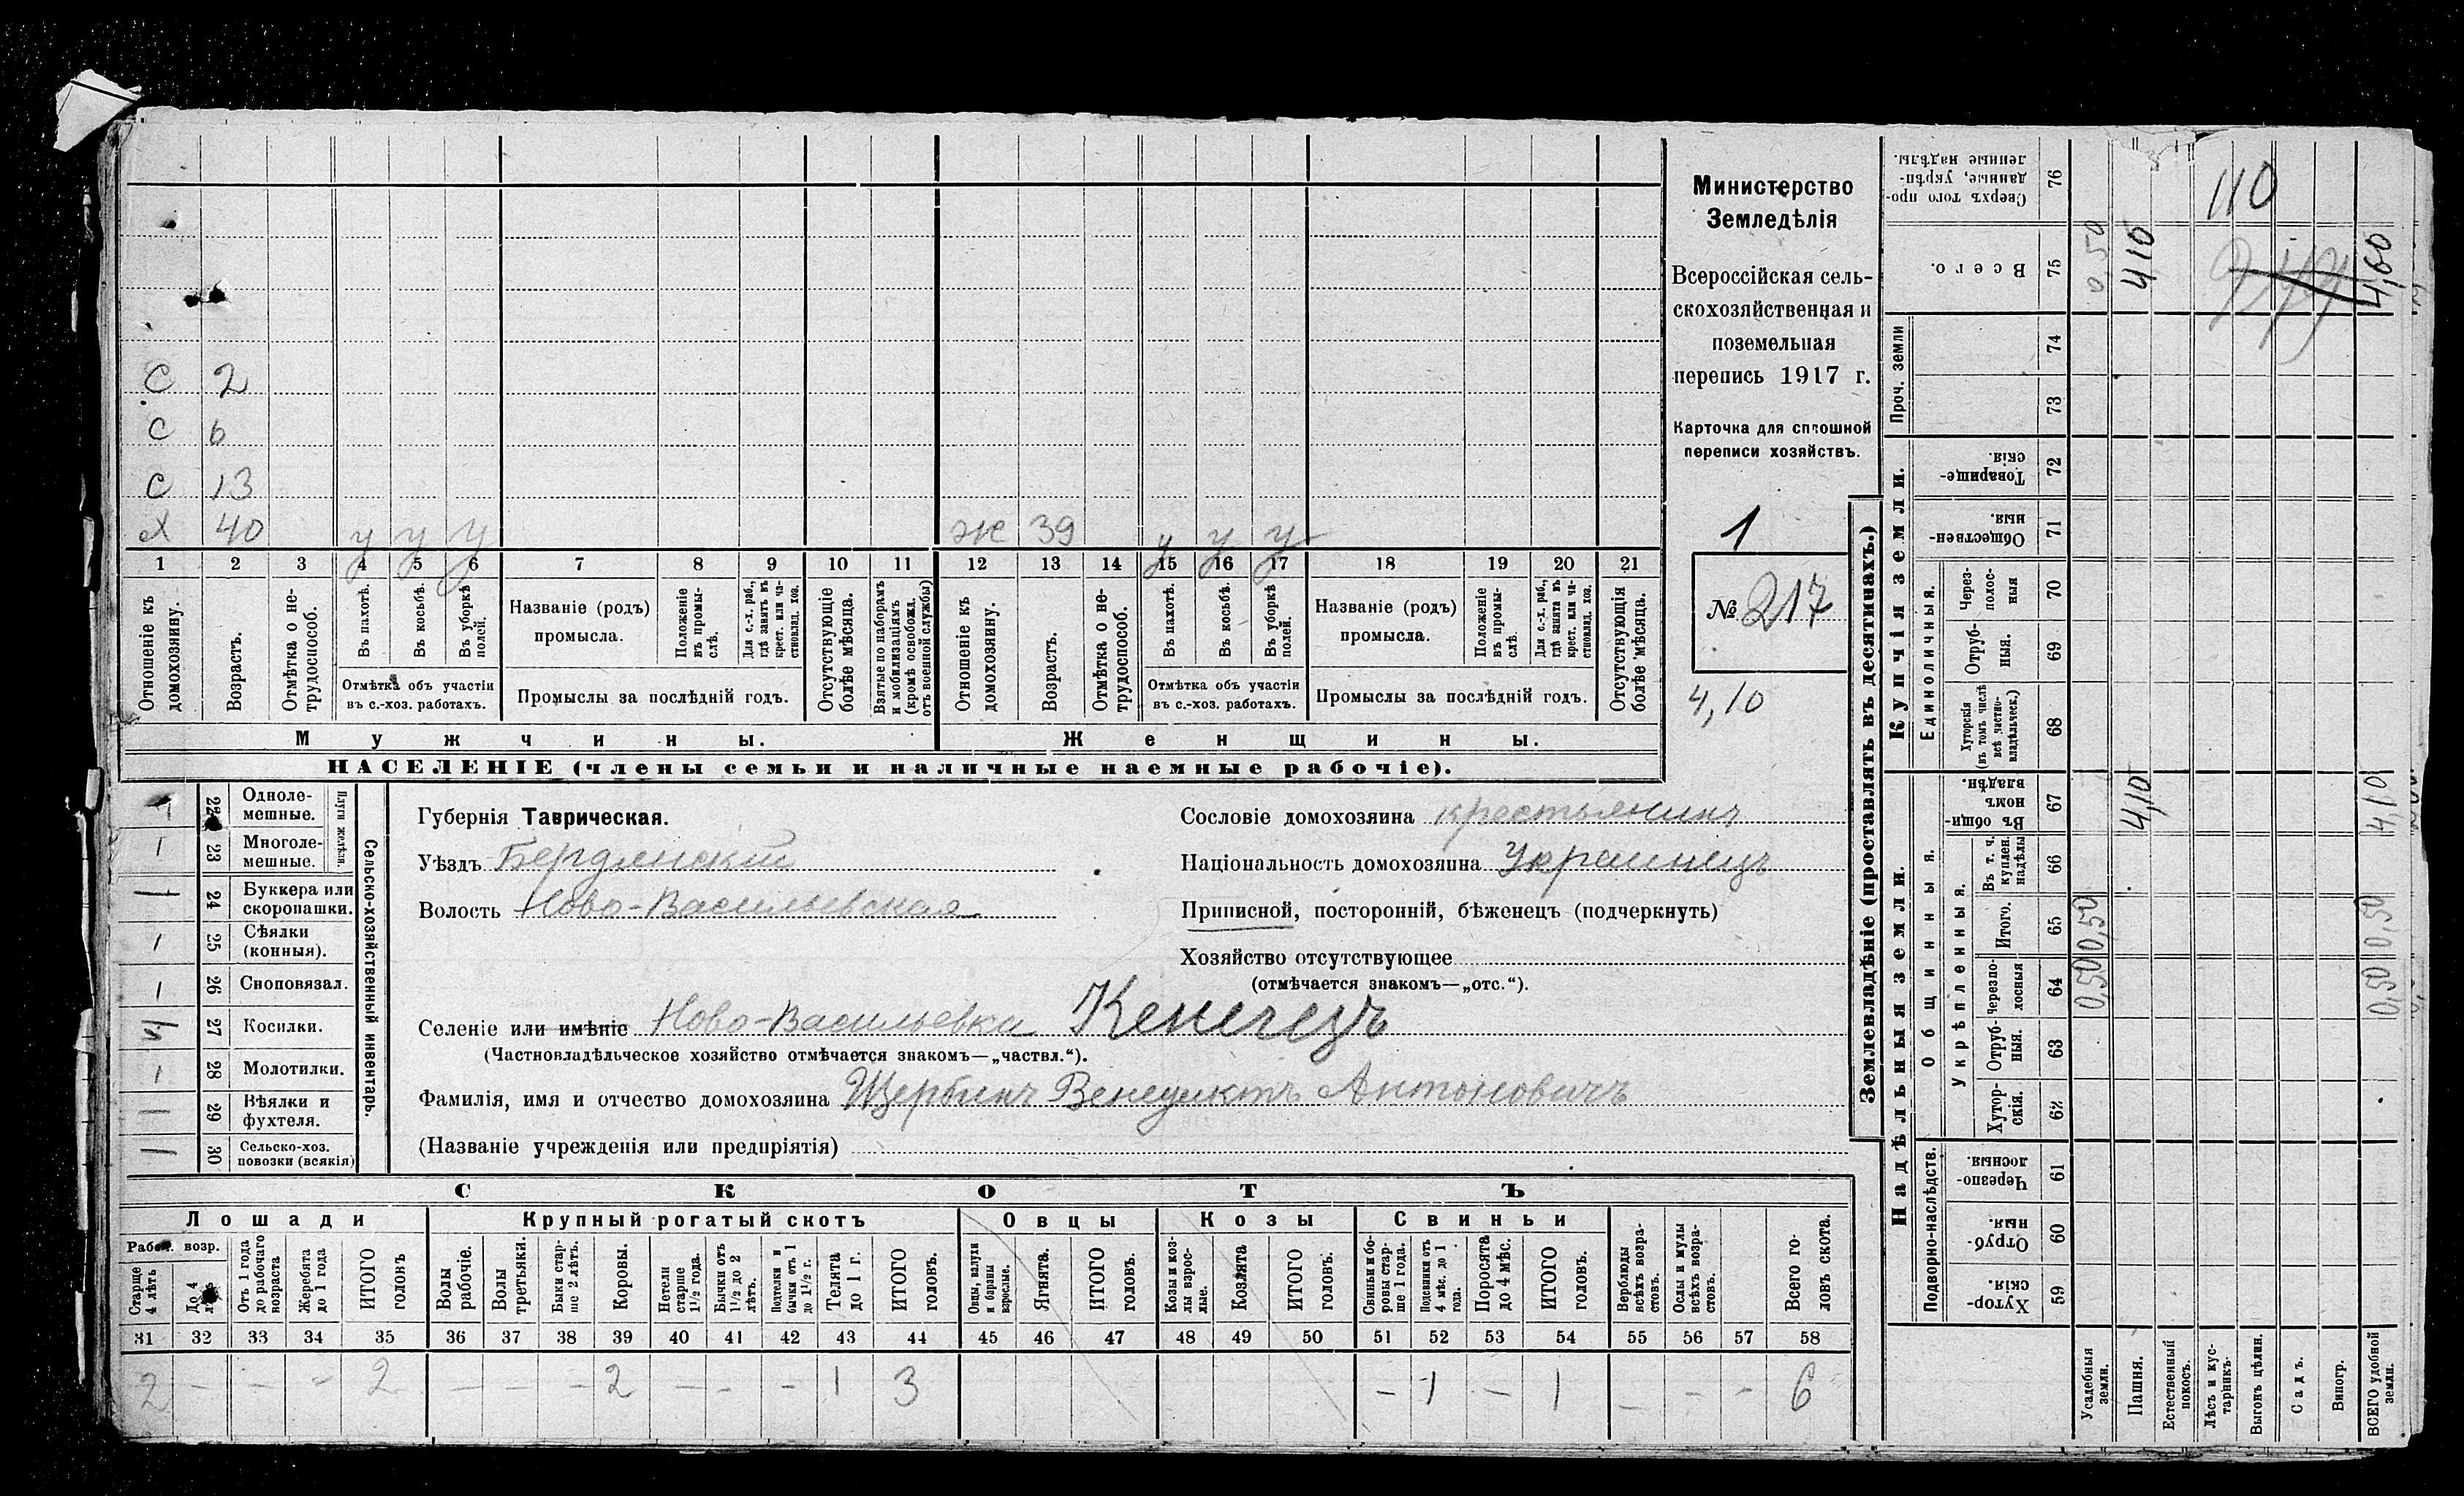 С 2
С 6
С 13
Х 40 у у у ж 39 у у у
1 2 3 4 5 6 7 8 9 10 11 12 13 14 15 16 17 18 19 20 21
Отношеніе къ домохозяину.
Возрастъ.
Отмѣтка о не-трудоспособ.
Въ пахотѣ.
Въ косьбѣ.
Въ уборкѣ полей.
Отмѣтка объ участіи
въ с.-хоз. работахъ.
Названіе (родъ)
промысла.
Положеніе въ промы-слѣ.
Для с.-х. раб., гдѣ занятъ въ крест. или ча-стновлад. хоз.
Промыслы за послѣдній годъ.
Отсутствующіе болѣе мѣсяца.
Взятые по наборамъ и мобилизаціямъ (кромѣ освобожд. отъ военной службы)
Отношеніе къ домохозяину.
Возрастъ.
Отмѣтка о не-трудоспособ.
Въ пахотѣ.
Въ косьбѣ.
Въ уборкѣ полей.
Отмѣтка объ участіи
въ с.-хоз. работахъ.
Названіе (родъ)
промысла.
Положеніе въ промы-слѣ.
Для с.-х. раб., гдѣ занята въ крест. или ча-стновлад. хоз.
Промыслы за послѣдній годъ.
Отсутствующія болѣе мѣсяца.
Мужчины.
Женщины.
НАСЕЛЕНІЕ (члены семьи и наличные наемные рабочіе).
Министерство
Земледѣлія
Всероссійская сель-
скохозяйственная и
поземельная
перепись 1917 г.
Карточка для сплошной
переписи хозяйствъ.
1
№ 217
4,10
22 Одноле-мешные.
1 23 Многоле-мешные.
Плуги желѣзн.
1 24 Буккера или скоропашки.
1 25 Сѣялки (конныя).
1 26 Сноповязал.
27 Косилки.
1 28 Молотилки.
1 29 Вѣялки и фухтеля.
1 30 Сельско-хоз. повозки (всякія)
Сельско-хозяйственный инвентарь.
Губернія Таврическая.
Уѣздъ Бердянскій
Волость Ново-Васильевская
Сословіе домохозяина крестьянинъ
Національность домохозяина Украинецъ
Приписной, посторонній, бѣженецъ (подчеркнуть)
Хозяйство отсутствующее
(отмѣчается знакомъ—„отс.“).
Селеніе или имѣніе Ново-Васильевка
(Частновладѣльческое хозяйство отмѣчается знакомъ—„частвл.“).
Фамилія, имя и отчество домохозяина Щербинъ Венедиктъ Антоновичъ
(Названіе учрежденія или предпріятія)
СКОТЪ
Лошади
Крупный рогатый скотъ
Овцы
Козы
Свиньи
Рабоч. возр.
Старше 4 лѣтъ
До 4 лѣтъ
Отъ 1 года до рабочаго возраста
Жеребята до 1 года
ИТОГО головъ
Волы рабочіе.
Волы третьяки.
Быки стар-ше 2 лѣтъ.
Коровы.
Нетели старше 1½ года.
Бычки отъ 1½ до 2 лѣтъ.
Подтелки и бычки отъ 1 до 1½ г.
Телята до 1 г.
ИТОГО головъ.
Овцы, валухи и бараны взрослые.
Ягнята.
ИТОГО головъ.
Козы и коз-лы взрос-лые.
Козлята
ИТОГО головъ.
Свиньи и бо-ровы стар-ше 1 года.
Подсвинки отъ 4 мѣс. до 1 года.
Поросята до 4 мѣс.
ИТОГО головъ.
Верблюды всѣхъ возра-стовъ.
Ослы и мулы всѣхъ возра-стовъ.
Всего го-ловъ скота.
31 32 33 34 35 36 37 38 39 40 41 42 43 44 45 46 47 48 49 50 51 52 53 54 55 56 57 58
2 – – – 2 – – – 2 – – – 1 3 – 1 – 1 – – – 6
Землевладѣніе (проставлять въ десятинахъ.)
Надѣльныя земли.
Купчія земли.
Проч. земли
Подворно-наслѣдств.
Общинныя.
Укрѣпленныя.
Единоличныя.
Сверхъ того про-данные, укрѣп-ленные надѣлы. 76
Всего. 75
74
73
Товарище-скія. 72
Обществен-ныя. 71
Через-полос-ныя 70
Отруб-ныя. 69
Хуторскія (въ томъ числѣ всѣ частно-владѣльческ.) 68
Въ общи-номъ владѣн. 67
Въ т. ч. куплен. надѣлы 66
Итого. 65
Черезпо-лосныя 64
Отруб-ныя. 63
Хутор-скія. 62
Черезпо-лосныя. 61
Отруб-ныя. 60
Хутор-скія. 59
Усадебныя земли.
Пашня.
Естественный покосъ.
Лѣсъ и кус-тарникъ.
Выгонъ цѣлин.
Садъ.
Виногр.
ВСЕГО удобной земли.
110
0,50 410 4,60
4,10 4,10
0,50 0,50
0,50 0,50